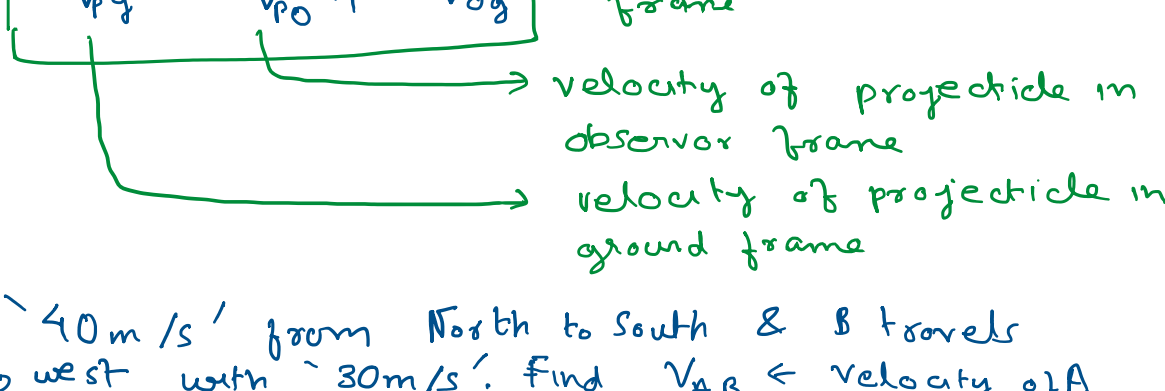 frame
velocity of projectile in
observor frame
velocity of projectile in
ground frame
'40m/s' from North to South & B travels
west with '30m/s'. Find V_AB ← velocity of A